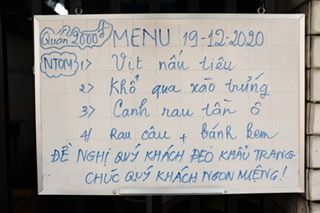 Quán 2000đ MENU 19-12-2020
NTON 1> Vịt nấu tiêu
2> Khổ qua xào trứng
3> Canh rau tần ô
4/ Rau câu + bánh kem
ĐỀ NGHỊ QUÝ KHÁCH ĐEO KHẨU TRANG
CHÚC QUÝ KHÁCH NGON MIỆNG!